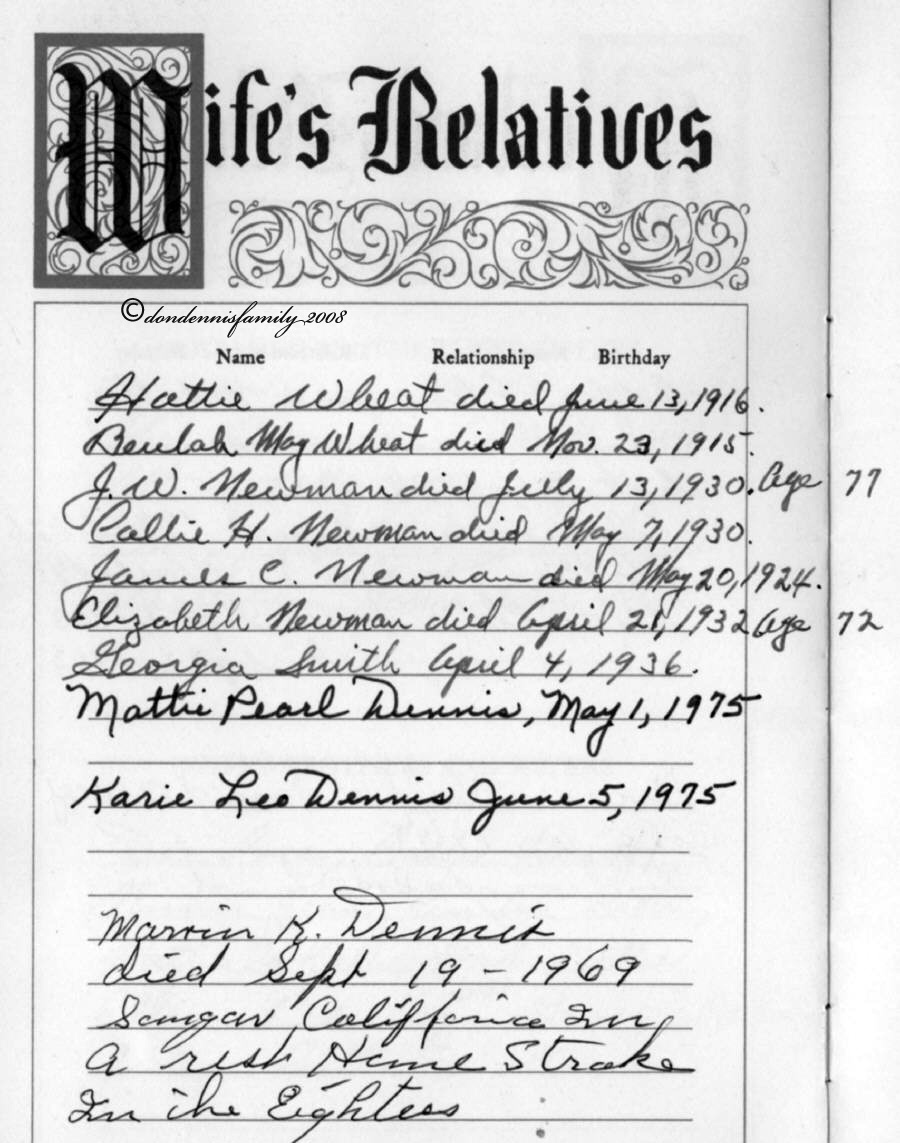 Wife's Relatives
©dondennisfamily 2008
Name Relationship Birthday
Hattie Wheat died June 13, 1916.
Beulah May Wheat died Nov. 23, 1915.
J. W. Newman died July 13, 1930. Age 77
Callie H. Newman died May 7, 1930.
James C. Newman died May 20, 1924.
Elizabeth Newman died April 21, 1932 Age 72
Georgia Smith April 4, 1936.
Mattie Pearl Dennis, May 1, 1975
Karie Leo Dennis June 5, 1975
Marvin K. Dennis
died Sept 19 - 1969
California In
a rest Home Stroke
In the Eightees